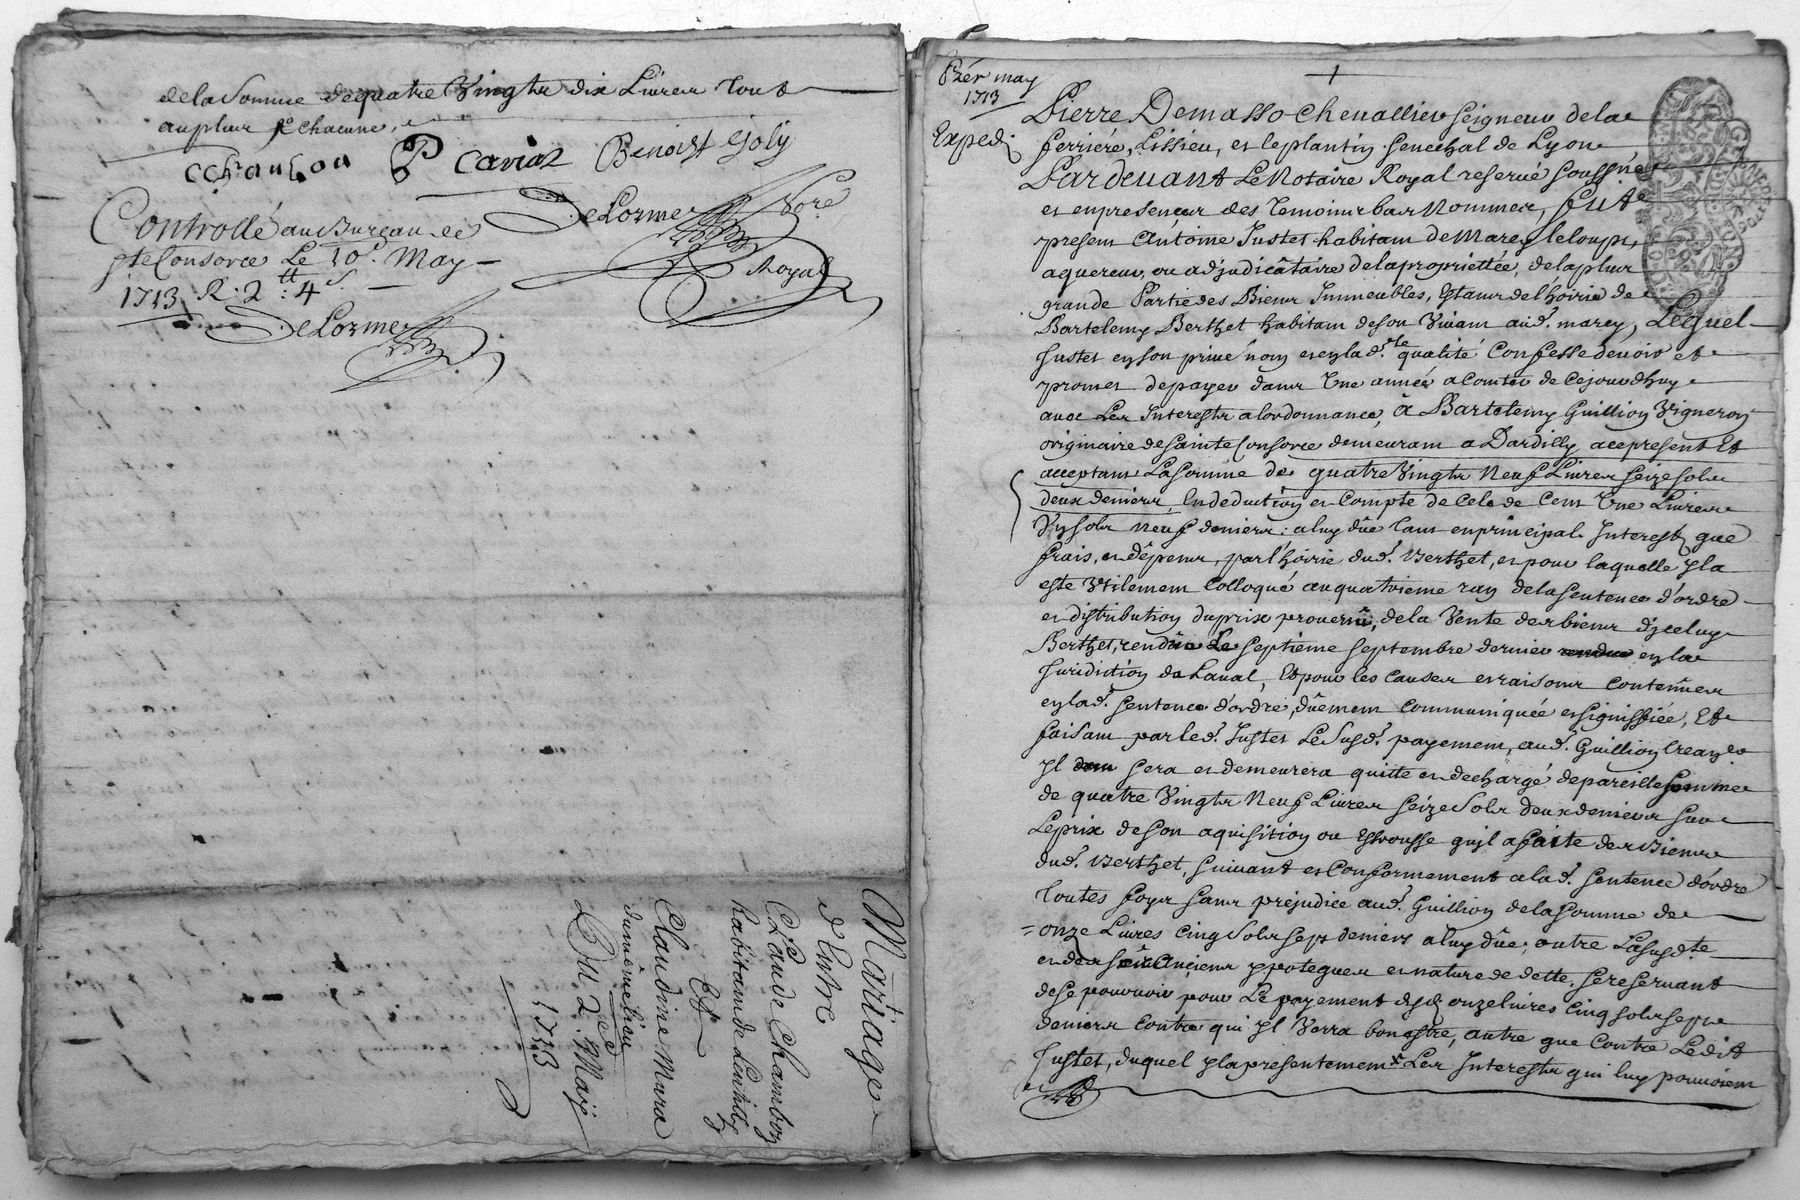 de la Somme de quatre Vingts dix Livres tout
au plus chacune,
P Cariat Benoist Joly
DeLorme No.re
Royal
Controllé au Bureau de
S.te Consorce Le 10.e May
1713 R. 2 tt : 4 s.
DeLorme
Mariage
d'Entre
Claude Chamboz
habitant de Lentilly
Et
Claudine Mura
du même lieu
Du 2.e May
1713
may
1713
Exped.
Pierre Demasso Chevallier Seigneur de la
ferriere, Lissieu, et le plantin Senechal de Lyon
Pardevant Le Notaire Royal reservé soussigné
et en presence des temoins bas Nommez, fut
present Antoine Justet habitant de Marcy le loup,
aquereur ou adjudicâtaire de la propriettée, de la plus
grande Partie des Biens Immeubles, Estans de l'hoirie de
Bartelemy Berthet habitant de son Vivant aud. marcy, Lequel
Justet en son privé nom et en lad.te qualité Confesse devoir et
promet de payer dans Une année a Comter de Cejourdhuy
avec Les Interests a lordonnance, â Bartelemy Guillion Vigneron
originaire de Sainte Consorce demeurant a Dardilly ace present Et
acceptant La Somme de quatre Vingts Neuf Livres Seize Sols
deux deniers, En deduction et Compte de Cele de Cent Une Livres
Un sols neuf deniers a luy dûe tant en principal Interests que
frais, et dêpens, par l'hoirie dud. Berthet, et pour laquelle Il a
esté Utilement Colloqué au quatrieme ran de la Sentence d'ordre
et distribution du prix provenu, de la Vente des biens d'Iceluy
Berthet, rendûe Le Septiême Septembre dernier rendue en la
Juridiction de Laval, Et pour les Causes et raisons Contenües
en lad. Sentence d'ordre, dûement Communiquée et signiffiée, Et
faisant par led. Justet Le Susd. payement, aud. Guillion Crean.er
Il Sera et demeurera quitte et dechargé de pareille Somme
de quatre Vingts Neuf Livres Seize Sols deux deniers Sur
Le prix de Son aquisition ou Estrousse qu'il a faite des Biens
dud. Berthet, Suivant et Conformement a lad. Sentence d'ordre
Toutes foys sans préjudice aud. Guillion de la Somme de
onze Livres Cinq Sols Sept deniers a luy dûe, outre La Susd.te
et des Anciens ypoteques et nature de dette, Se reservant
de se pourvoir pour Le payement desd. onze livres Cinq Sols Sept
deniers Contre qui Il Verra bon estre, autre que Contre Ledit
Justet, duquel Il a presentement Les Interests qui luy pouvoient